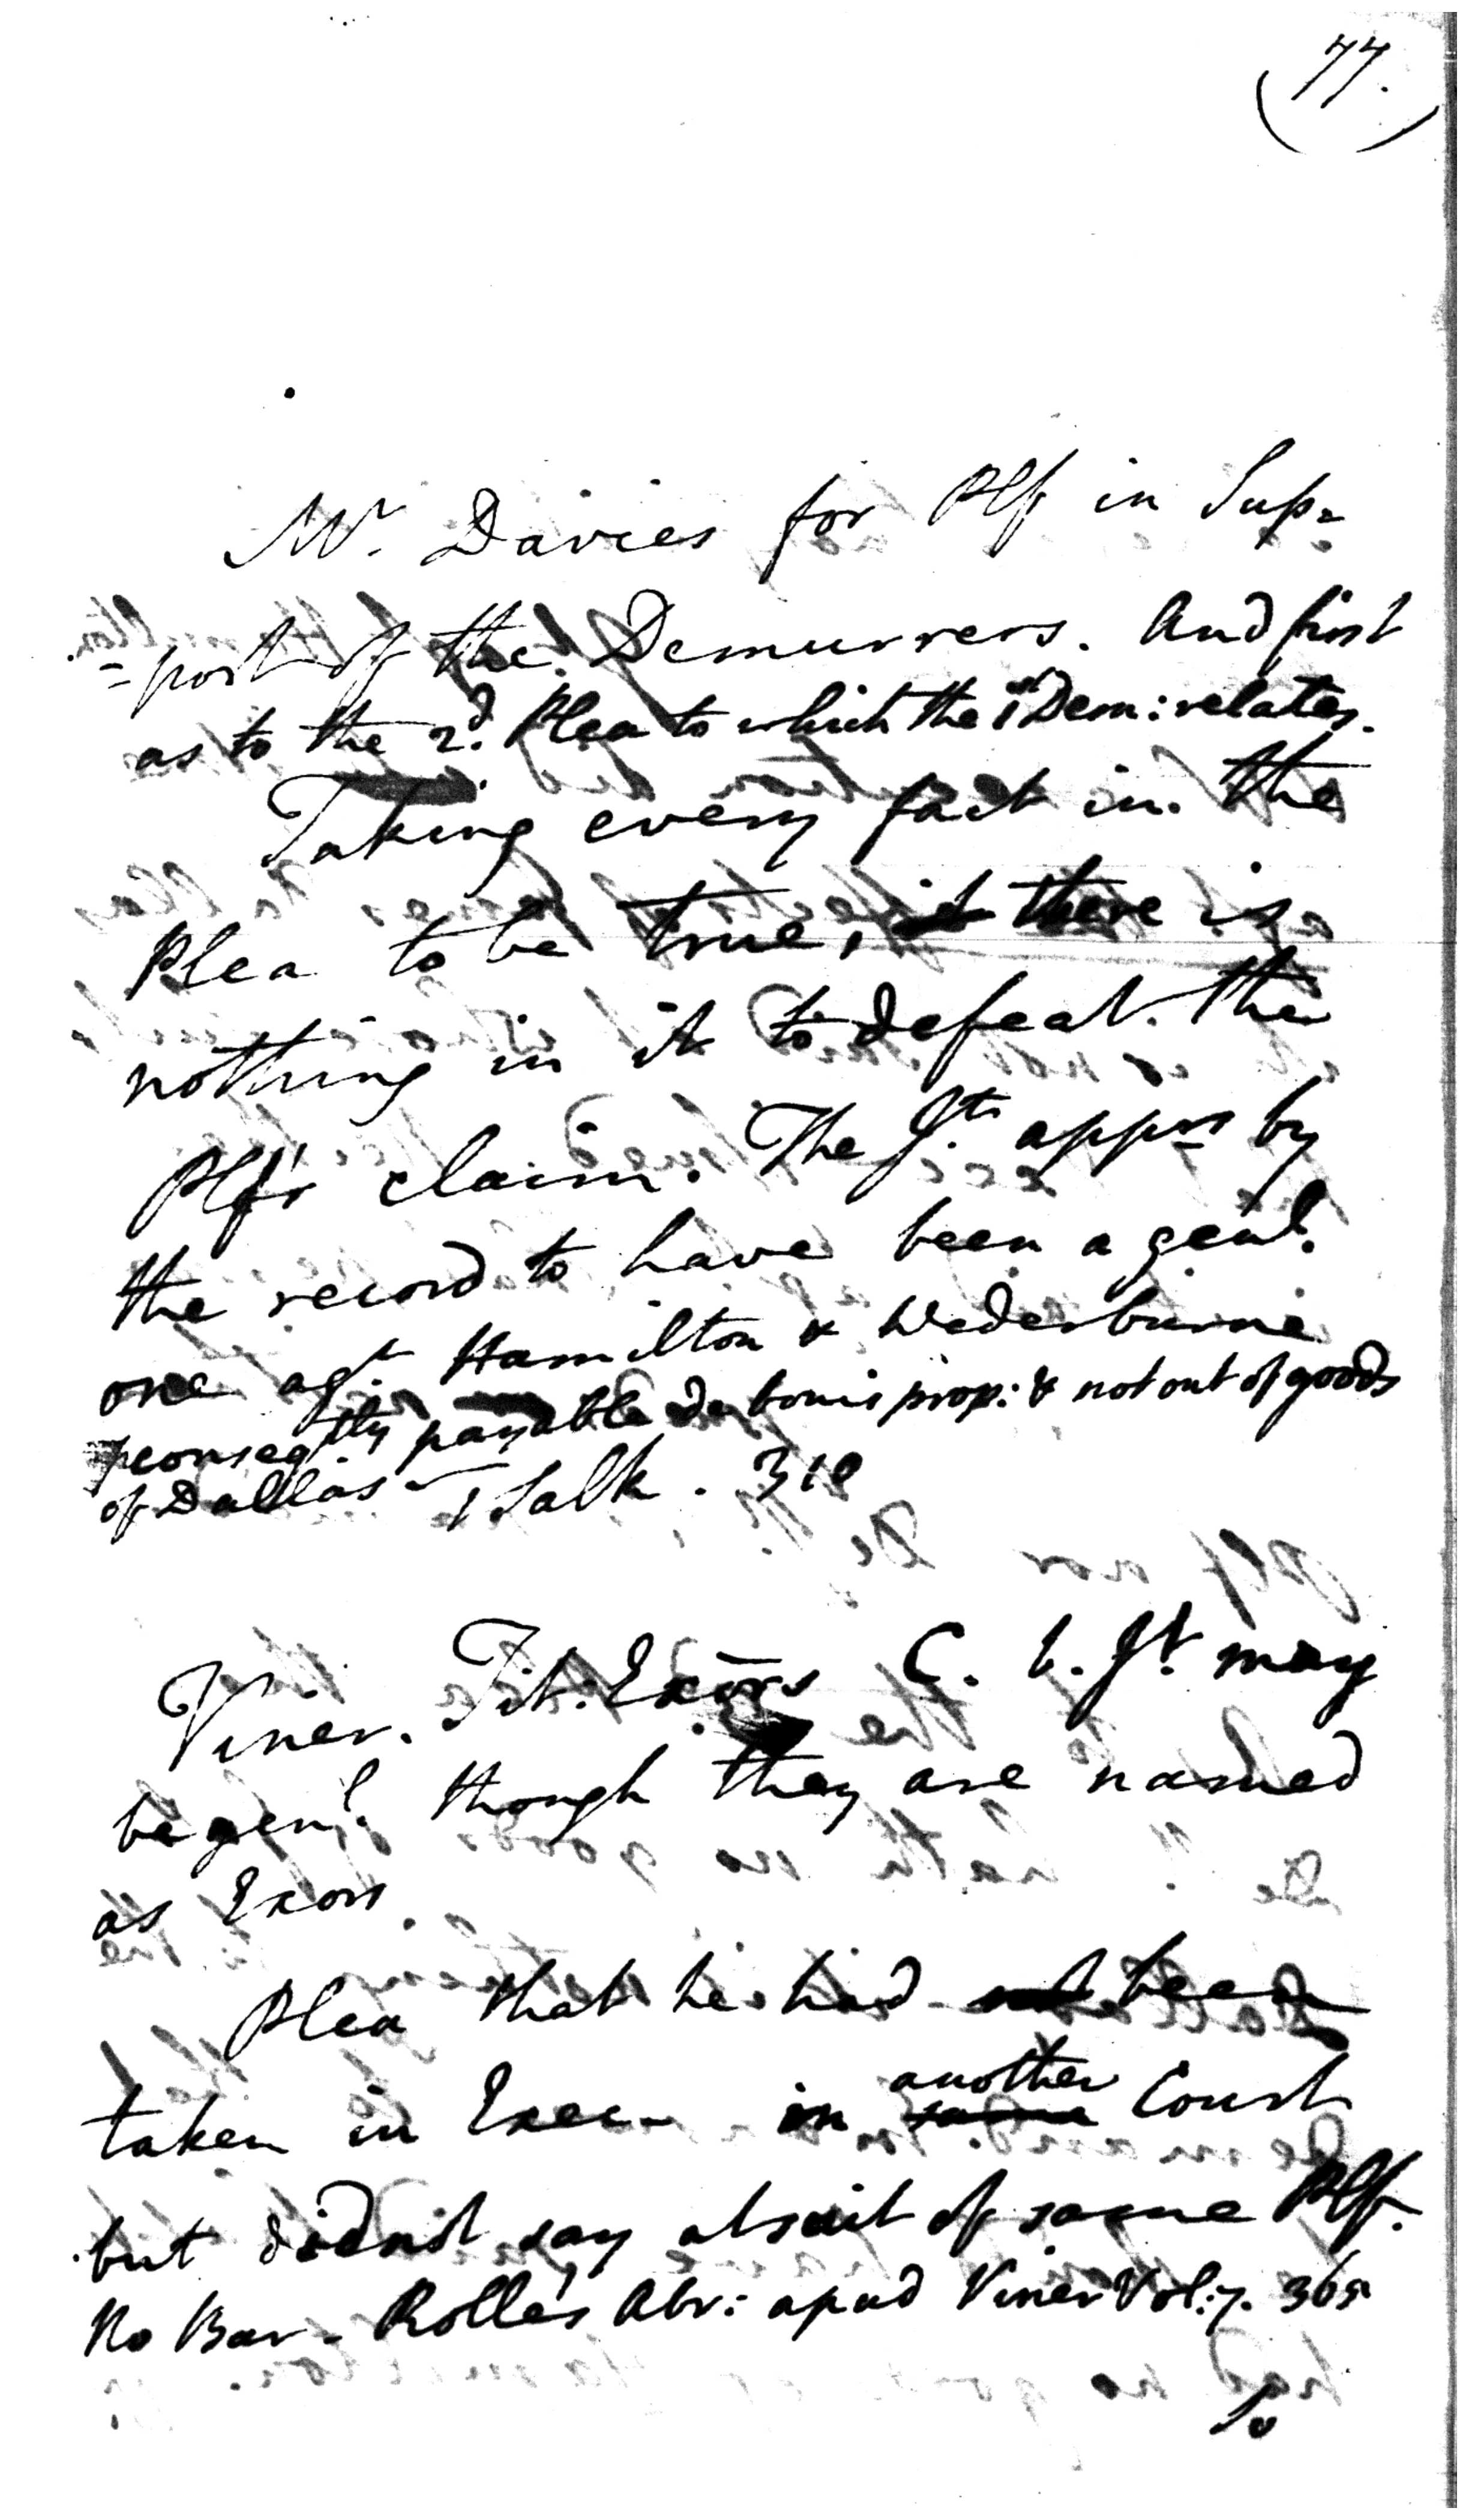 (77.)
Mr. Davies for Plf in Sup=
=port of the Demurrers. And first
as to the 2d. Plea to which the 1st Dem: relates.
Taking every fact in the
Plea to be true, there is
nothing in it to defeat the
Plf's claim. The Jt. apprs by
the record to have been a genl.
one agt. Hamilton & Wederburne
& conseqtly payable de bonis prop: & not out of goods
of Dallas - 1 Salk. 310
Viner. Tit. Exōrs C. b. Jt. may
be genl. though they are named
as Exors.
Plea that he had been
taken in Exec- in another Court
but did not say at suit of same Plf.
No Bar - Rolle's Abr: apud Viner Vol: 7. 365
So